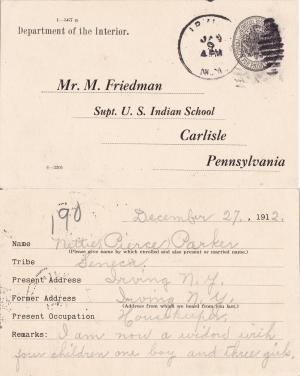 1—567 a
Department of the Interior.
Mr. M. Friedman
Supt. U. S. Indian School
Carlisle
Pennsylvania
6—2205
190
December 27, 1912.
Name Nettie Pierce Parker
(Please give name by which enrolled and also present or married name.)
Tribe Seneca
Present Address Irving N.Y.
Former Address Irving N.Y.
(Address from which we heard from you last.)
Present Occupation Housekeeper
Remarks: I am now a widow with
four children one boy and three girls,